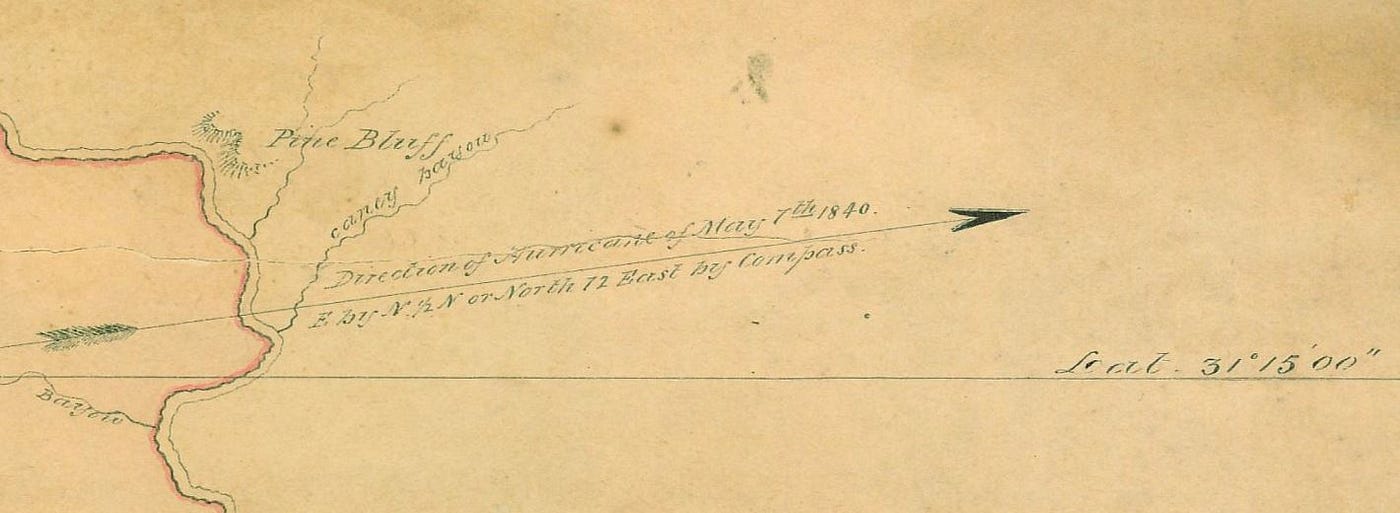 Pine Bluff
caney bayou
Direction of Hurricane of May 7th 1840.
E by N. ½ N or North 72 East by Compass.
Lat. 31° 15' 00"
Bayou